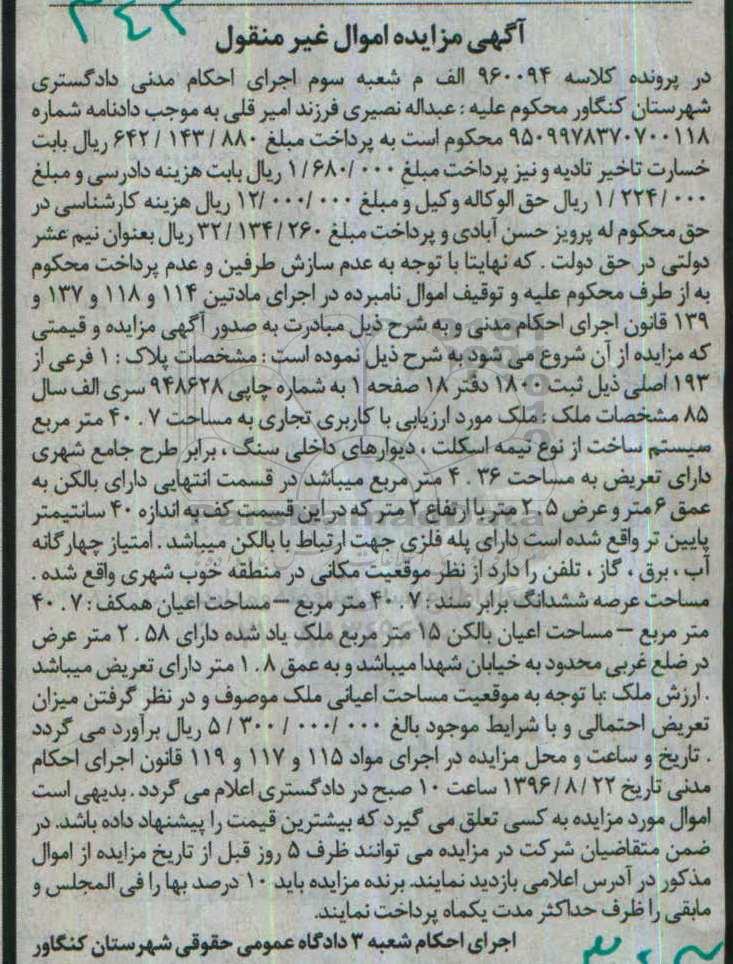 آگهی مزایده اموال غیر منقول
در پرونده کلاسه ۹۶۰۰۹۴ الف م شعبه سوم اجرای احکام مدنی دادگستری
شهرستان کنگاور محکوم علیه : عبداله نصیری فرزند امیر قلی به موجب دادنامه شماره
۹۵۰۹۹۷۸۳۷۰۷۰۰۱۱۸ محکوم است به پرداخت مبلغ ۶۴۲/۱۴۳/۸۸۰ ریال بابت
خسارت تاخیر تادیه و نیز پرداخت مبلغ ۱/۶۸۰/۰۰۰ ریال بابت هزینه دادرسی و مبلغ
۱/۲۲۴/۰۰۰ ریال حق الوکاله وکیل و مبلغ ۱۲/۰۰۰/۰۰۰ ریال هزینه کارشناسی در
حق محکوم له پرویز حسن آبادی و پرداخت مبلغ ۳۲/۱۳۴/۲۶۰ ریال بعنوان نیم عشر
دولتی در حق دولت . که نهایتا با توجه به عدم سازش طرفین و عدم پرداخت محکوم
به از طرف محکوم علیه و توقیف اموال نامبرده در اجرای مادتین ۱۱۴ و ۱۱۸ و ۱۳۷ و
۱۳۹ قانون اجرای احکام مدنی و به شرح ذیل مبادرت به صدور آگهی مزایده و قیمتی
که مزایده از آن شروع می شود به شرح ذیل نموده است : مشخصات پلاک : ۱ فرعی از
۱۹۳ اصلی ذیل ثبت ۱۸۰۰ دفتر ۱۸ صفحه ۱ به شماره چاپی ۹۴۸۶۲۸ سری الف سال
۸۵ مشخصات ملک : ملک مورد ارزیابی با کاربری تجاری به مساحت ۴۰.۷ متر مربع
سیستم ساخت از نوع نیمه اسکلت ، دیوارهای داخلی سنگ ، برابر طرح جامع شهری
دارای تعریض به مساحت ۴.۳۶ متر مربع میباشد در قسمت انتهایی دارای بالکن به
عمق ۶ متر و عرض ۲.۵ متر با ارتفاع ۲ متر که در این قسمت کف به اندازه ۴۰ سانتیمتر
پایین تر واقع شده است دارای پله فلزی جهت ارتباط با بالکن میباشد . امتیاز چهارگانه
آب ، برق ، گاز ، تلفن را دارد از نظر موقعیت مکانی در منطقه خوب شهری واقع شده .
مساحت عرصه ششدانگ برابر سند : ۴۰.۷ متر مربع – مساحت اعیان همکف : ۴۰.۷
متر مربع – مساحت اعیان بالکن ۱۵ متر مربع ملک یاد شده دارای ۲.۵۸ متر عرض
در ضلع غربی محدود به خیابان شهدا میباشد و به عمق ۱.۸ متر دارای تعریض میباشد
. ارزش ملک :با توجه به موقعیت مساحت اعیانی ملک موصوف و در نظر گرفتن میزان
تعریض احتمالی و با شرایط موجود بالغ ۵/۳۰۰/۰۰۰/۰۰۰ ریال برآورد می گردد
. تاریخ و ساعت و محل مزایده در اجرای مواد ۱۱۵ و ۱۱۷ و ۱۱۹ قانون اجرای احکام
مدنی تاریخ ۱۳۹۶/۸/۲۲ ساعت ۱۰ صبح در دادگستری اعلام می گردد . بدیهی است
اموال مورد مزایده به کسی تعلق می گیرد که بیشترین قیمت را پیشنهاد داده باشد. در
ضمن متقاضیان شرکت در مزایده می توانند ظرف ۵ روز قبل از تاریخ مزایده از اموال
مذکور در آدرس اعلامی بازدید نمایند. برنده مزایده باید ۱۰ درصد بها را فی المجلس و
مابقی را ظرف حداکثر مدت یکماه پرداخت نمایند.
اجرای احکام شعبه ۳ دادگاه عمومی حقوقی شهرستان کنگاور